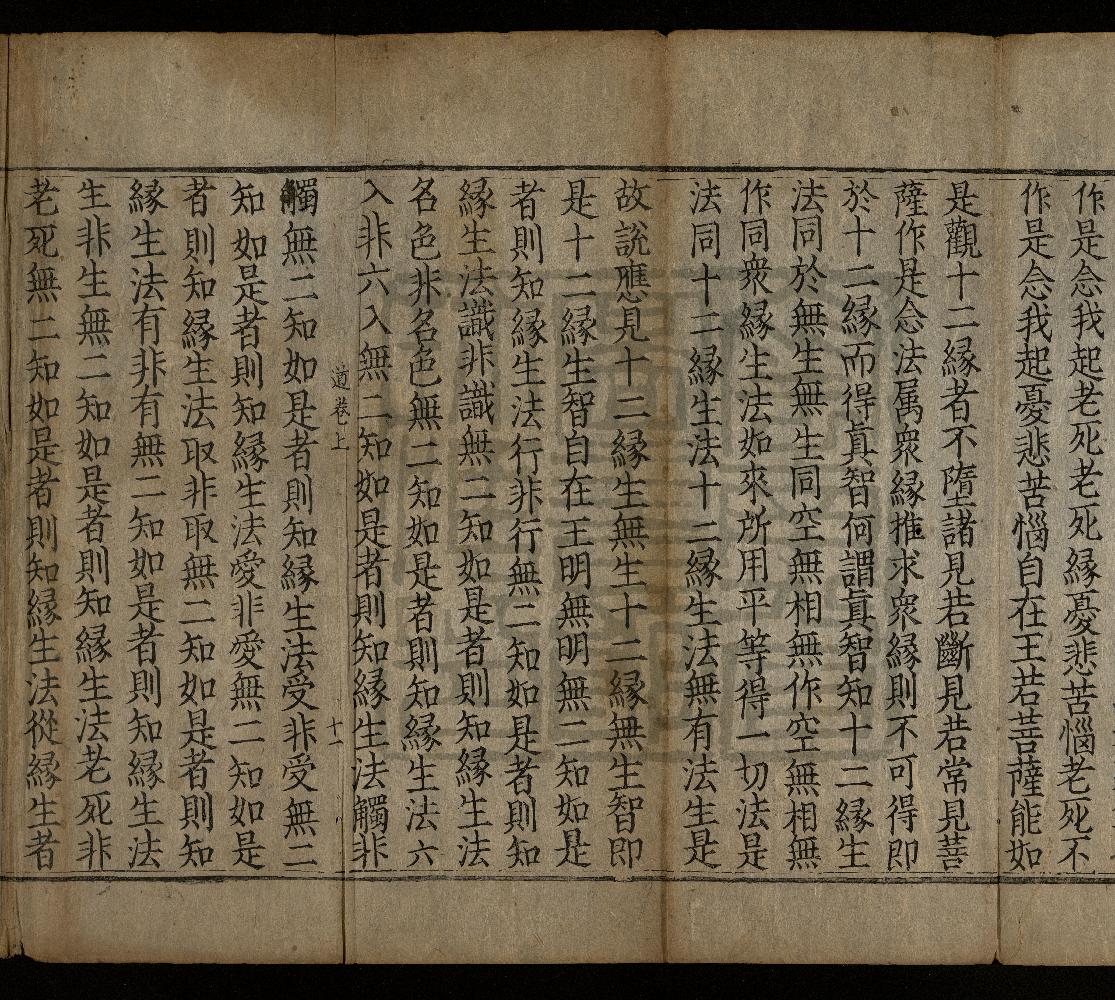 作是念我起老死老死緣憂悲苦惱老死不
作是念我起憂悲苦惱自在王若菩薩能如
是觀十二緣者不墮諸見若斷見若常見菩
薩作是念法属衆緣推求衆緣則不可得即
於十二緣而得眞智何謂眞智知十二緣生
法同於無生無生同空無相無作空無相無
作同衆緣生法如來所用平等得一切法是
法同十二緣生法十二緣生法無有法生是
故說應見十二緣生無生十二緣無生智即
是十二緣生智自在王明無明無二知如是
者則知緣生法行非行無二知如是者則知
緣生法識非識無二知如是者則知緣生法
名色非名色無二知如是者則知緣生法六
入非六入無二知如是者則知緣生法觸非
道卷上 十一
觸無二知如是者則知緣生法受非受無二
知如是者則知緣生法愛非愛無二知如是
者則知緣生法取非取無二知如是者則知
緣生法有非有無二知如是者則知緣生法
生非生無二知如是者則知緣生法老死非
老死無二知如是者則知緣生法從緣生者